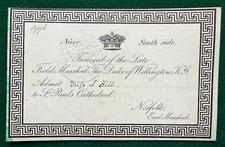 Nave South side.
Funeral of the Late
Field Marshal The Duke of Wellington, K.G.
Admit
to St. Paul's Cathedral.
Norfolk,
Earl Marshal.